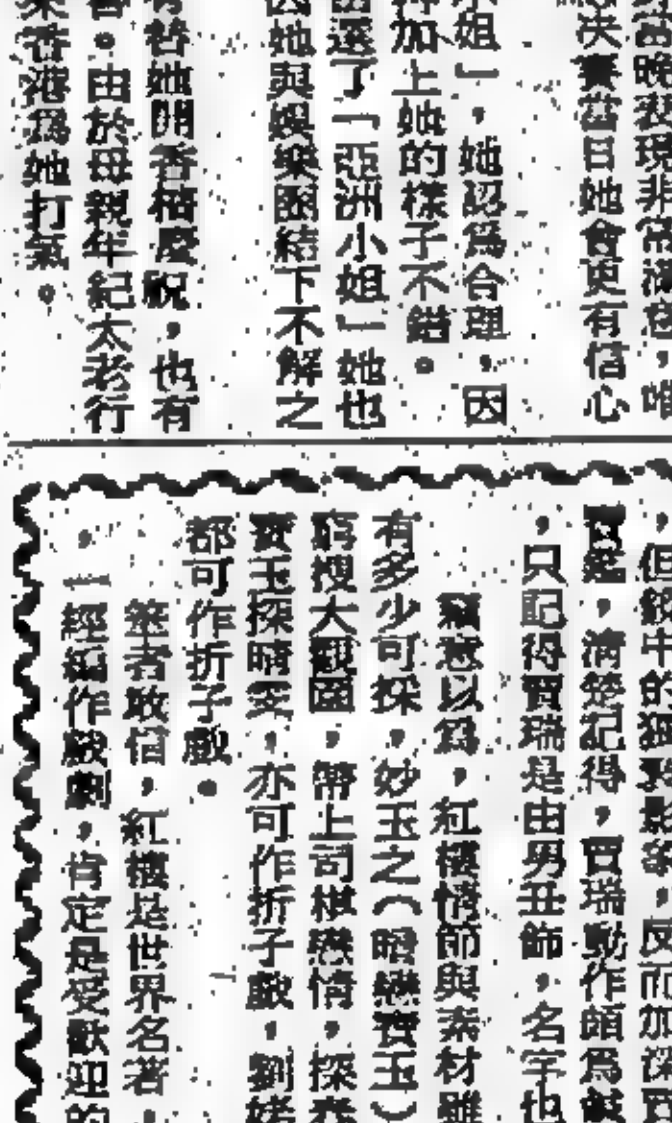 當晚表現非常滿意，唯
決賽當日她會更有信心
小姐」，她認爲合理，因
加上她的樣子不錯。
選了「亞洲小姐」她也
她與娛樂圈結下不解之
替她開香檳慶祝，也有
。由於母親年紀太老行
來香港爲她打氣。
，但從中的
，反而加深
，清楚記得，賈瑞動作頗爲
，只記得賈瑞是由男丑飾，名字也
竊意以爲，紅樓情節與素材雖
有多少可採，妙玉之（暗戀寶玉）
窮搜大觀園，帶上司棋戀情，探春
寶玉探晴雯，亦可作折子戲，劉姥
都可作折子戲。
筆者敢信，紅樓是世界名著
，一經編作戲劇，肯定是受歡迎的